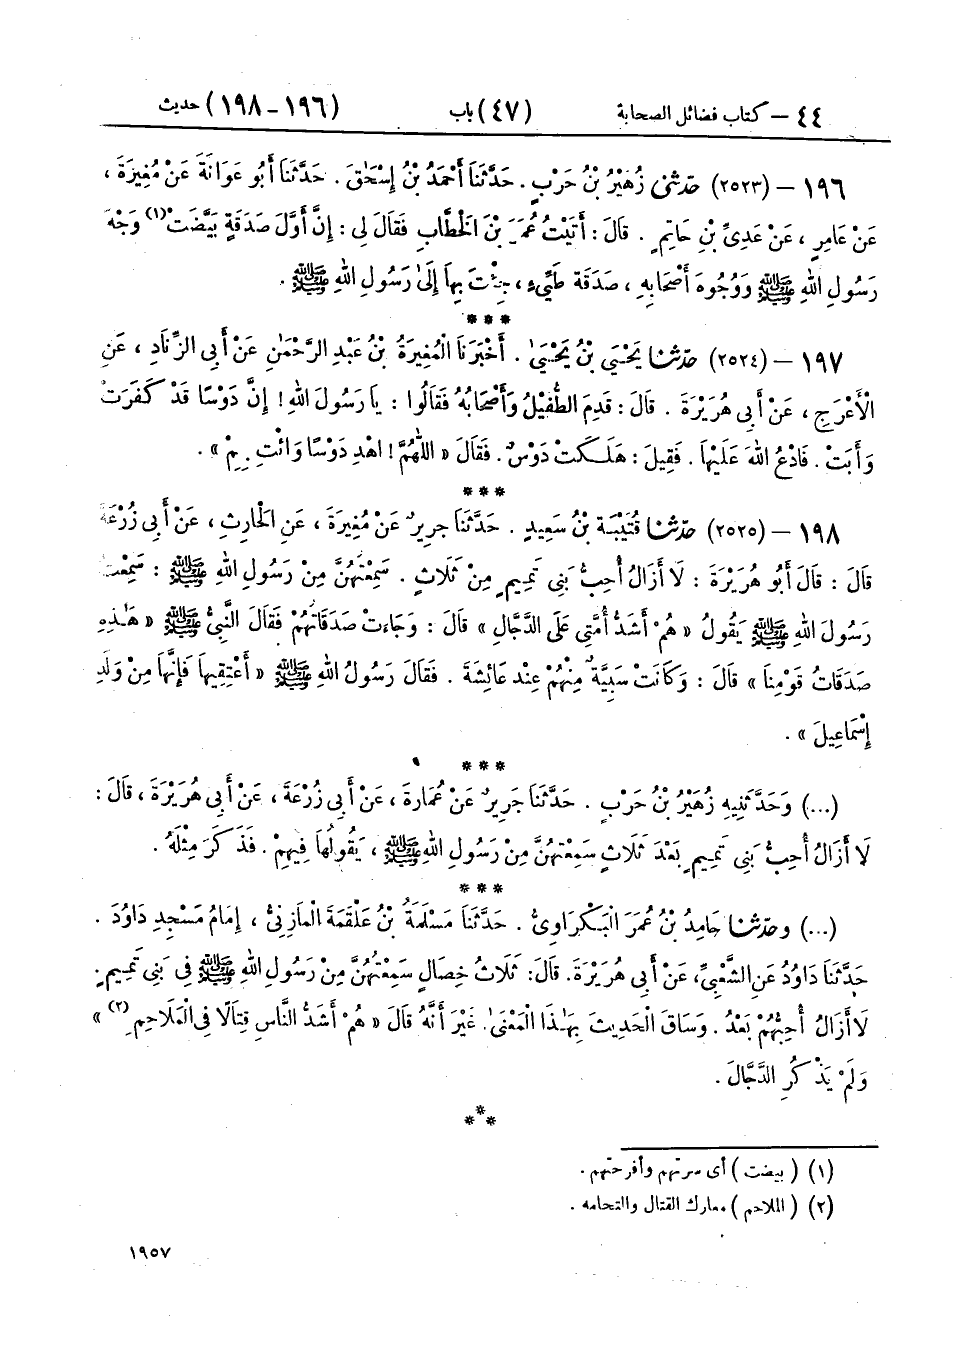 ٤٤ – كتاب فضائل الصحابة (٤٧) باب (١٩٦ – ١٩٨) حديث
١٩٦ – (٢٥٢٣) حَدَّثَنِي زُهَيْرُ بْنُ حَرْبٍ . حَدَّثَنَا أَحْمَدُ بْنُ إِسْحَقَ . حَدَّثَنَا أَبُو عَوَانَةَ عَنْ مُغِيرَةَ ،
عَنْ عَامِرٍ ، عَنْ عَدِيِّ بْنِ حَاتِمٍ . قَالَ : أَتَيْتُ عُمَرَ بْنَ الْخَطَّابِ فَقَالَ لِي : إِنَّ أَوَّلَ صَدَقَةٍ بَيَّضَتْ (١) وَجْهَ
رَسُولِ اللهِ ﷺ وَوُجُوهَ أَصْحَابِهِ ، صَدَقَةُ طَيِّيءٍ ، جِئْتَ بِهَا إِلَىٰ رَسُولِ اللهِ ﷺ .
***
١٩٧ – (٢٥٢٤) حَدَّثَنَا يَحْيَىٰ بْنُ يَحْيَىٰ . أَخْبَرَنَا الْمُغِيرَةُ بْنُ عَبْدِ الرَّحْمَٰنِ عَنْ أَبِي الزِّنَادِ ، عَنِ
الْأَعْرَجِ ، عَنْ أَبِي هُرَيْرَةَ . قَالَ : قَدِمَ الطُّفَيْلُ وَأَصْحَابُهُ فَقَالُوا : يَا رَسُولَ اللهِ ! إِنَّ دَوْسًا قَدْ كَفَرَتْ
وَأَبَتْ . فَادْعُ اللهَ عَلَيْهَا . فَقِيلَ : هَلَكَتْ دَوْسٌ . فَقَالَ « اللَّهُمَّ ! اهْدِ دَوْسًا وَائْتِ بِهِمْ » .
***
١٩٨ – (٢٥٢٥) حَدَّثَنَا قُتَيْبَةُ بْنُ سَعِيدٍ . حَدَّثَنَا جَرِيرٌ عَنْ مُغِيرَةَ ، عَنِ الْحَارِثِ ، عَنْ أَبِي زُرْعَةَ
قَالَ : قَالَ أَبُو هُرَيْرَةَ : لَا أَزَالُ أُحِبُّ بَنِي تَمِيمٍ مِنْ ثَلَاثٍ . سَمِعْتُهُنَّ مِنْ رَسُولِ اللهِ ﷺ : سَمِعْتُ
رَسُولَ اللهِ ﷺ يَقُولُ « هُمْ أَشَدُّ أُمَّتِي عَلَى الدَّجَّالِ » قَالَ : وَجَاءَتْ صَدَقَاتُهُمْ فَقَالَ النَّبِيُّ ﷺ « هَٰذِهِ
صَدَقَاتُ قَوْمِنَا » قَالَ : وَكَانَتْ سَبِيَّةٌ مِنْهُمْ عِنْدَ عَائِشَةَ . فَقَالَ رَسُولُ اللهِ ﷺ « أَعْتِقِيهَا فَإِنَّهَا مِنْ وَلَدِ
إِسْمَاعِيلَ » .
***
(...) وَحَدَّثَنِيهِ زُهَيْرُ بْنُ حَرْبٍ . حَدَّثَنَا جَرِيرٌ عَنْ عُمَارَةَ ، عَنْ أَبِي زُرْعَةَ ، عَنْ أَبِي هُرَيْرَةَ ، قَالَ :
لَا أَزَالُ أُحِبُّ بَنِي تَمِيمٍ بَعْدَ ثَلَاثٍ سَمِعْتُهُنَّ مِنْ رَسُولِ اللهِ ﷺ ، يَقُولُهَا فِيهِمْ . فَذَكَرَ مِثْلَهُ .
***
(...) وحَدَّثَنَا حَامِدُ بْنُ عُمَرَ الْبَكْرَاوِيُّ . حَدَّثَنَا مَسْلَمَةُ بْنُ عَلْقَمَةَ الْمَازِنِيُّ ، إِمَامُ مَسْجِدِ دَاوُدَ .
حَدَّثَنَا دَاوُدُ عَنِ الشَّعْبِيِّ، عَنْ أَبِي هُرَيْرَةَ. قَالَ: ثَلَاثُ خِصَالٍ سَمِعْتُهُنَّ مِنْ رَسُولِ اللهِ ﷺ فِي بَنِي تَمِيمٍ.
لَا أَزَالُ أُحِبُّهُمْ بَعْدُ . وَسَاقَ الْحَدِيثَ بِهَٰذَا الْمَعْنَىٰ. غَيْرَ أَنَّهُ قَالَ « هُمْ أَشَدُّ النَّاسِ قِتَالًا فِي الْمَلَاحِمِ (٢) »
وَلَمْ يَذْكُرِ الدَّجَّالَ .
***
(١) ( بيضت ) أى سرتهم وأفرحتهم .
(٢) ( الملاحم ) معارك القتال والتحامه .
١٩٥٧